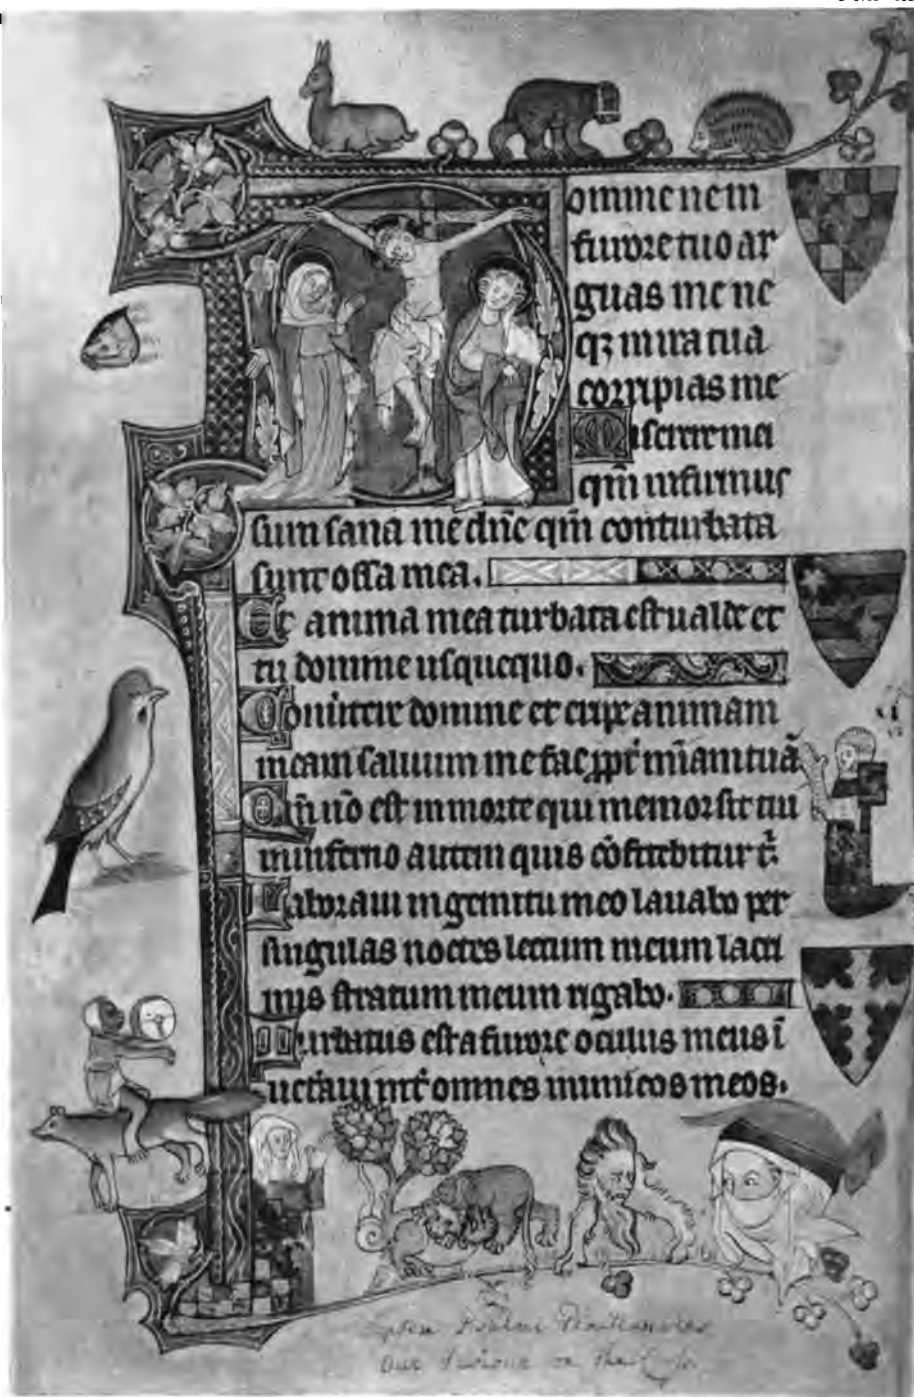 omine ne in
furore tuo ar
guas me ne
qꝫ in ira tua
corripias me
Miserere mei
qm̄ infirmus
sum sana me dn̄e qm̄ conturbata
sunt ossa mea.
Et anima mea turbata est ualde et
tu domine usquequo.
Conuertere domine et eripe animam
meam saluum me fac ꝓpt̄ m̄iam tuā
Qm̄ nō est in morte qui memor sit tui
in inferno autem quis cōfitebitur t̄.
Laboraui in gemitu meo lauabo per
singulas noctes lectum meum lacri
mis stratum meum rigabo.
Turbatus est a furore oculus meus ī
ueteraui int̄ omnes inimicos meos.
Psalmi Penitentiales
Our Saviour on the Cross.